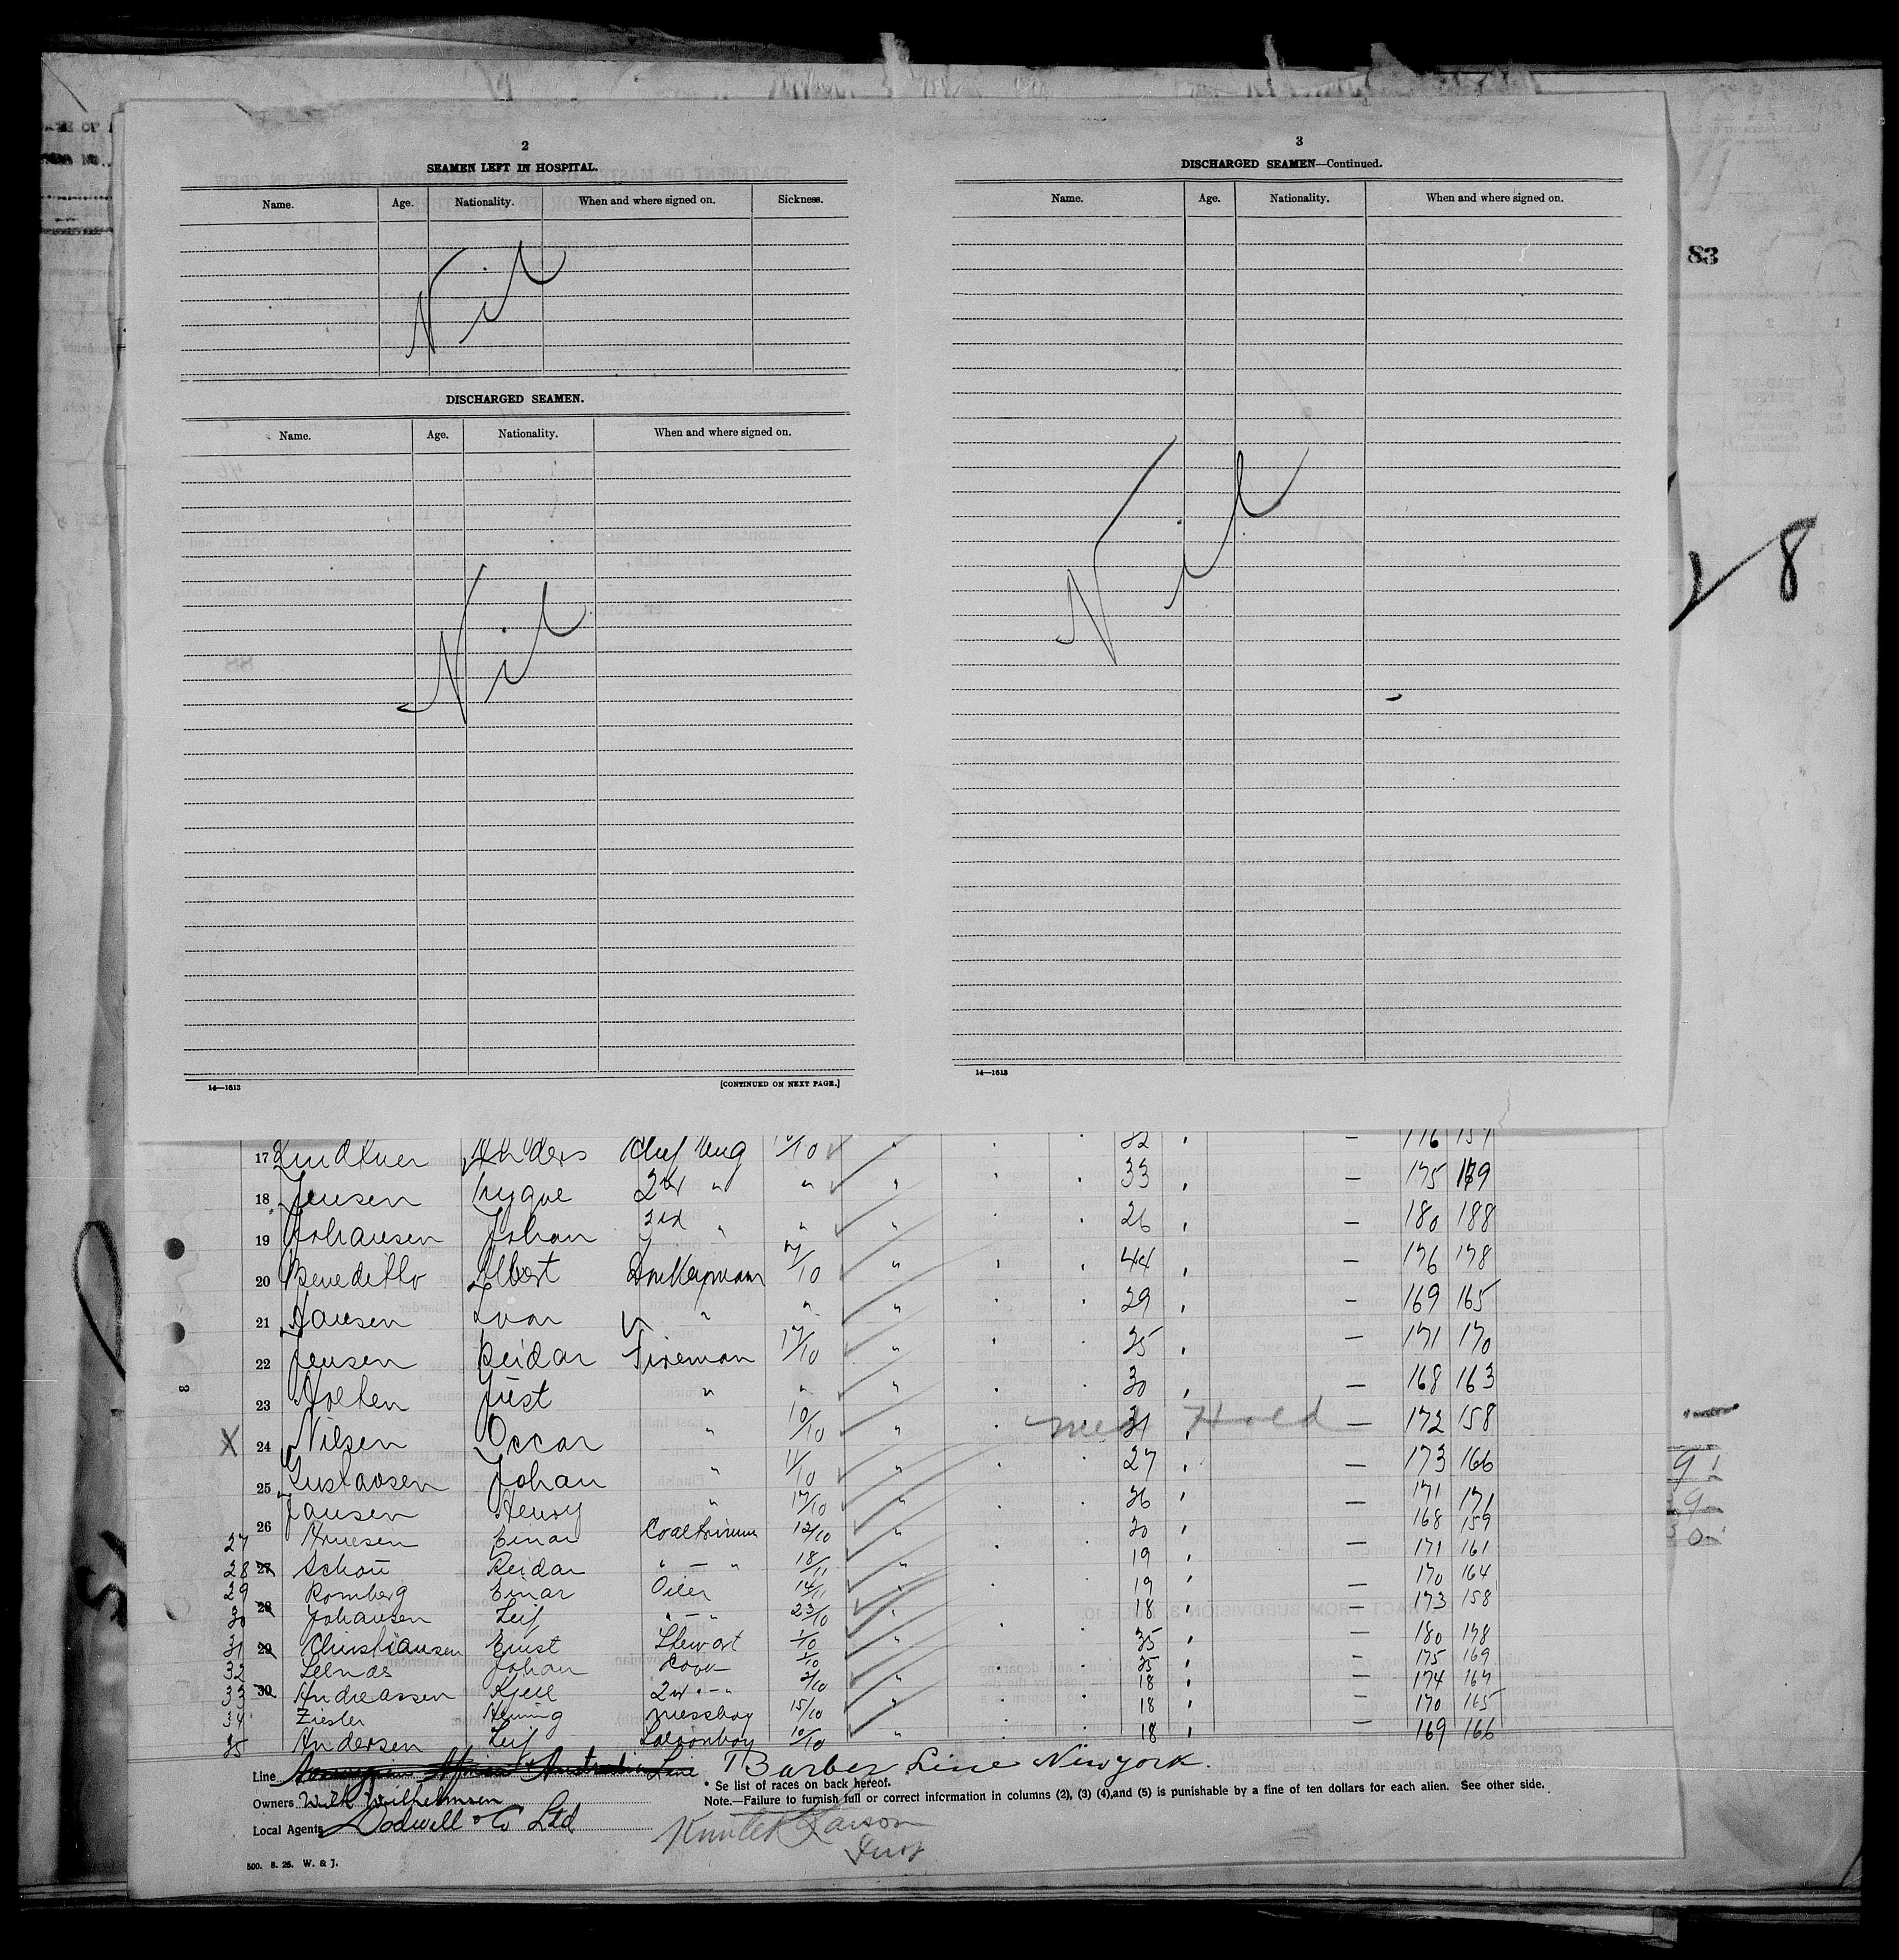 2
SEAMEN LEFT IN HOSPITAL.
Name. Age. Nationality. When and where signed on. Sickness.
Nil
DISCHARGED SEAMEN.
Name. Age. Nationality. When and where signed on.
Nil
14—1613 [CONTINUED ON NEXT PAGE.]
3
DISCHARGED SEAMEN—Continued.
Name. Age. Nationality. When and where signed on.
Nil
14—1613
83
8
17 Lindtner Anders Chief Eng 10/10 " 32 176 157
18 Jensen Trygve 2nd " " " 33 — 175 189
19 Johansen Johan 3rd " " " 26 — 180 188
20 Benedetto Albert Donkeyman 17/10 " 44 — 176 178
21 Hansen Ivar " " " 29 — 169 165
22 Jensen Reidar Fireman 17/10 " 25 — 171 170
23 Holten Just " " " 30 — 168 163
X 24 Nilsen Occar " 10/10 " Med 31 Hold — 172 158
25 Gustavsen Johan " 11/10 " 27 — 173 166
26 Jansen Henry " 17/10 " 26 — 171 171
27 Einar 12/10 " 20 168 159
28 27 Schou Reidar " — " 18/11 " 19 — 171 161
29 Romberg Einar Oiler 14/11 19 170 164
30 28 Johansen Leif " — " 23/10 " 18 — 173 158
31 29 Christiansen Ernst Stewart 1/10 " 35 — 180 178
32 Johan Cook 1/10 25 — 175 169
33 30 Andreassen Kjell 2nd " — " 2/10 " 18 — 174 167
34 Ziesler Henning Messboy 15/10 " 18 — 170 165
35 Andersen Leif Saloonboy 10/10 " 18 — 169 166
Line Norwegian African & Australian Line Barber Line New York.
* Se list of races on back hereof.
Owners Wilh Wilhelmsen
Note.—Failure to furnish full or correct information in columns (2), (3) (4),and (5) is punishable by a fine of ten dollars for each alien. See other side.
Local Agents Dodwell & Co Ltd
Larson
Insp
500. 8. 26. W. & J.
3